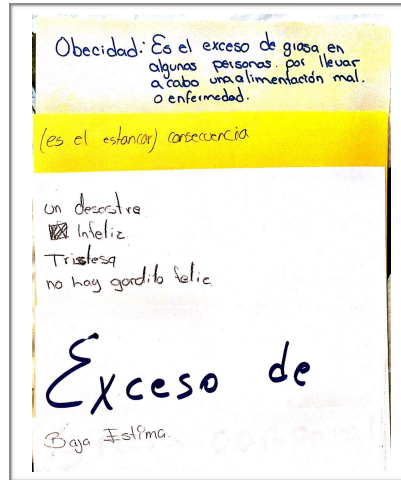 Obecidad: Es el exceso de grasa en
algunas personas. por llevar
a cabo una alimentación mal.
o enfermedad.
(es el estancar) consecuencia
un desastre
Infeliz.
Tristesa
no hay gordito feliz
Exceso de
Baja Estima.